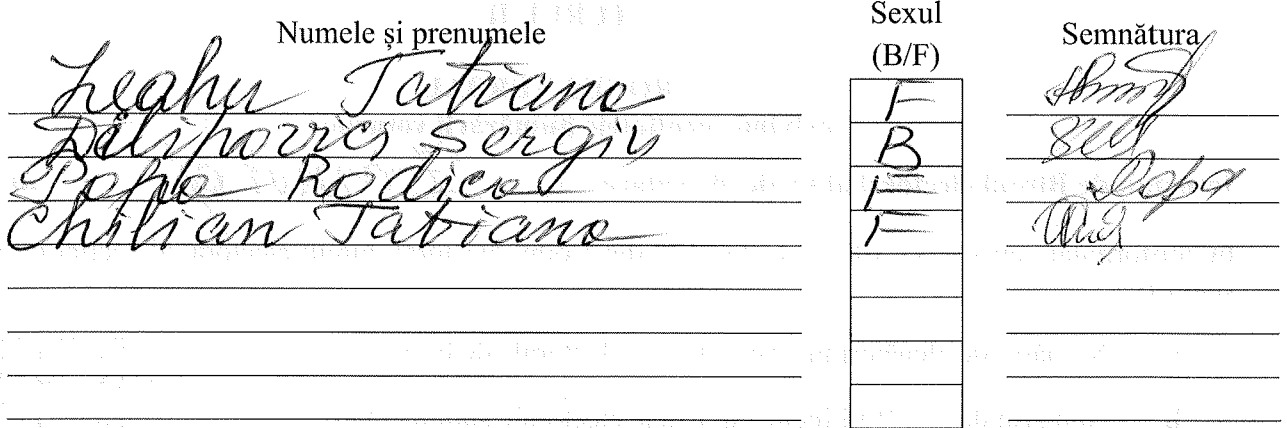 Numele și prenumele Sexul (B/F) Semnătura
Leahu Tatiana F
Filipovici Sergiu B
Popa Rodica F Popa
Chilian Tatiana F